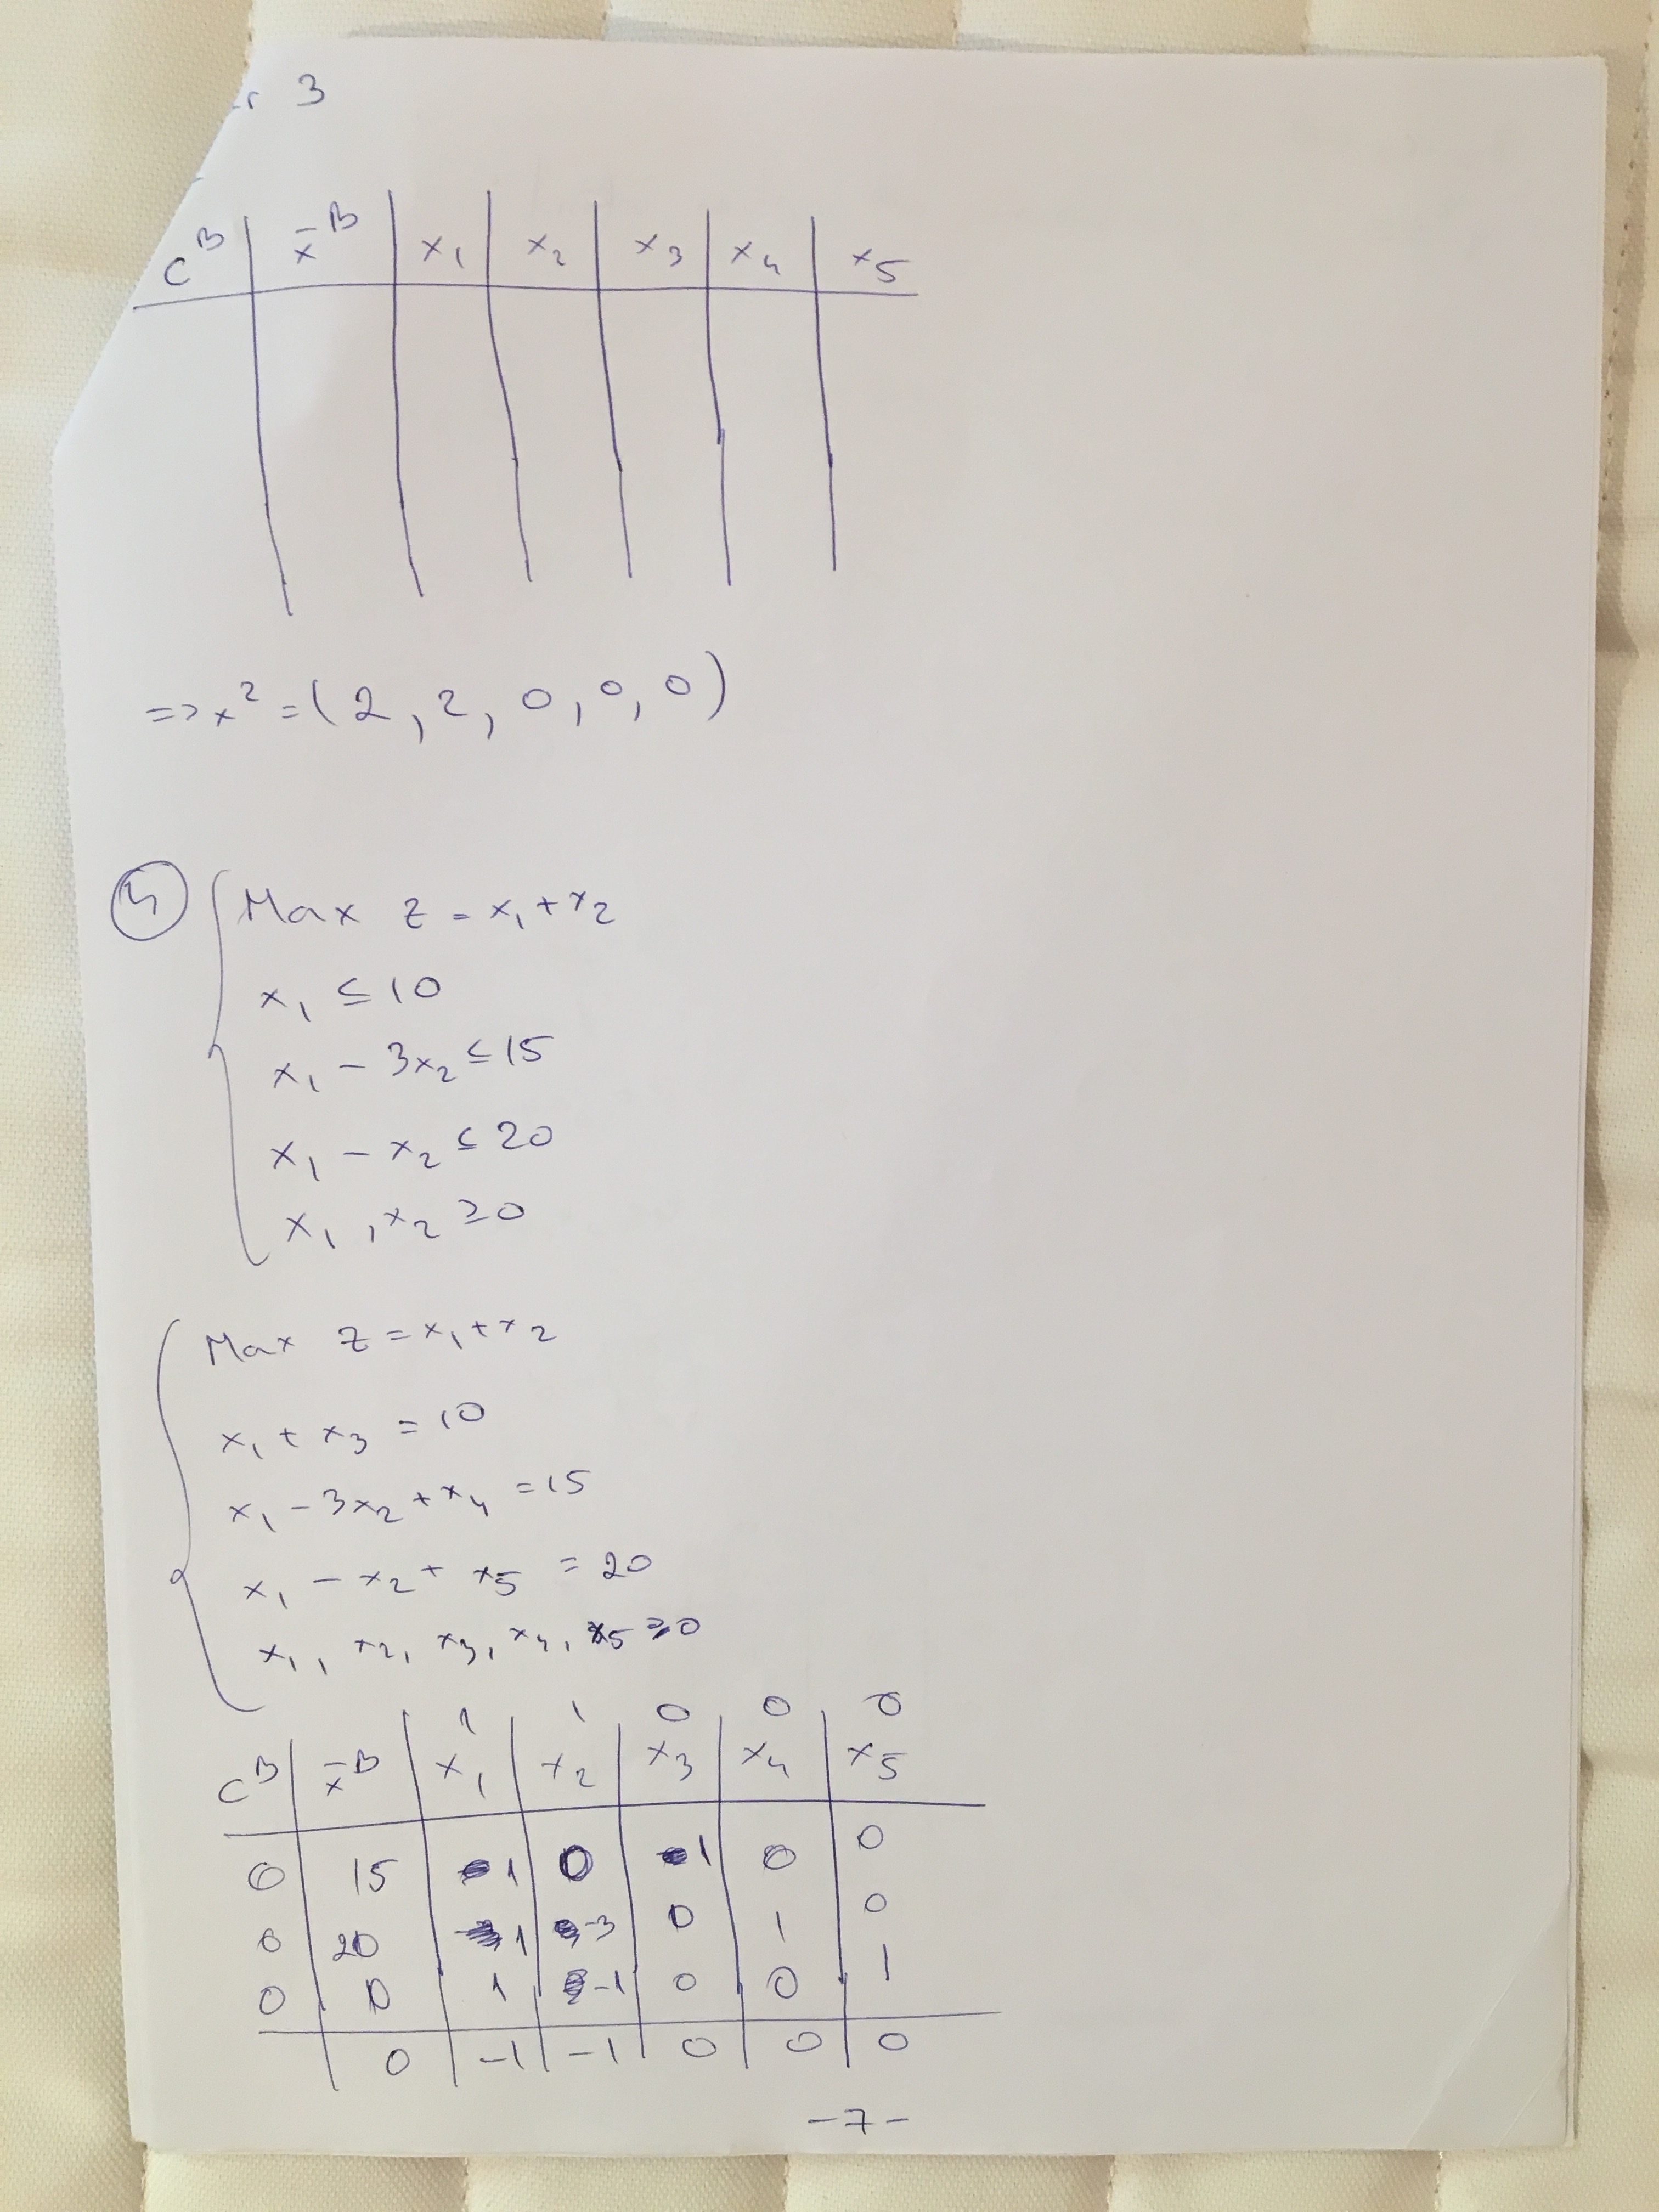 3
C^B x̄^B x₁ x₂ x₃ x₄ x₅
=> x² = (2, 2, 0, 0, 0)
④ Max z = x₁ + x₂
x₁ ≤ 10
x₁ - 3x₂ ≤ 15
x₁ - x₂ ≤ 20
x₁, x₂ ≥ 0
Max z = x₁ + x₂
x₁ + x₃ = 10
x₁ - 3x₂ + x₄ = 15
x₁ - x₂ + x₅ = 20
x₁, x₂, x₃, x₄, x₅ ≥ 0
1 1 0 0 0
C^B x̄^B x₁ x₂ x₃ x₄ x₅
0 15 1 0 1 0 0
0 20 1 -3 0 1 0
0 0 1 -1 0 0 1
0 -1 -1 0 0 0
-7-